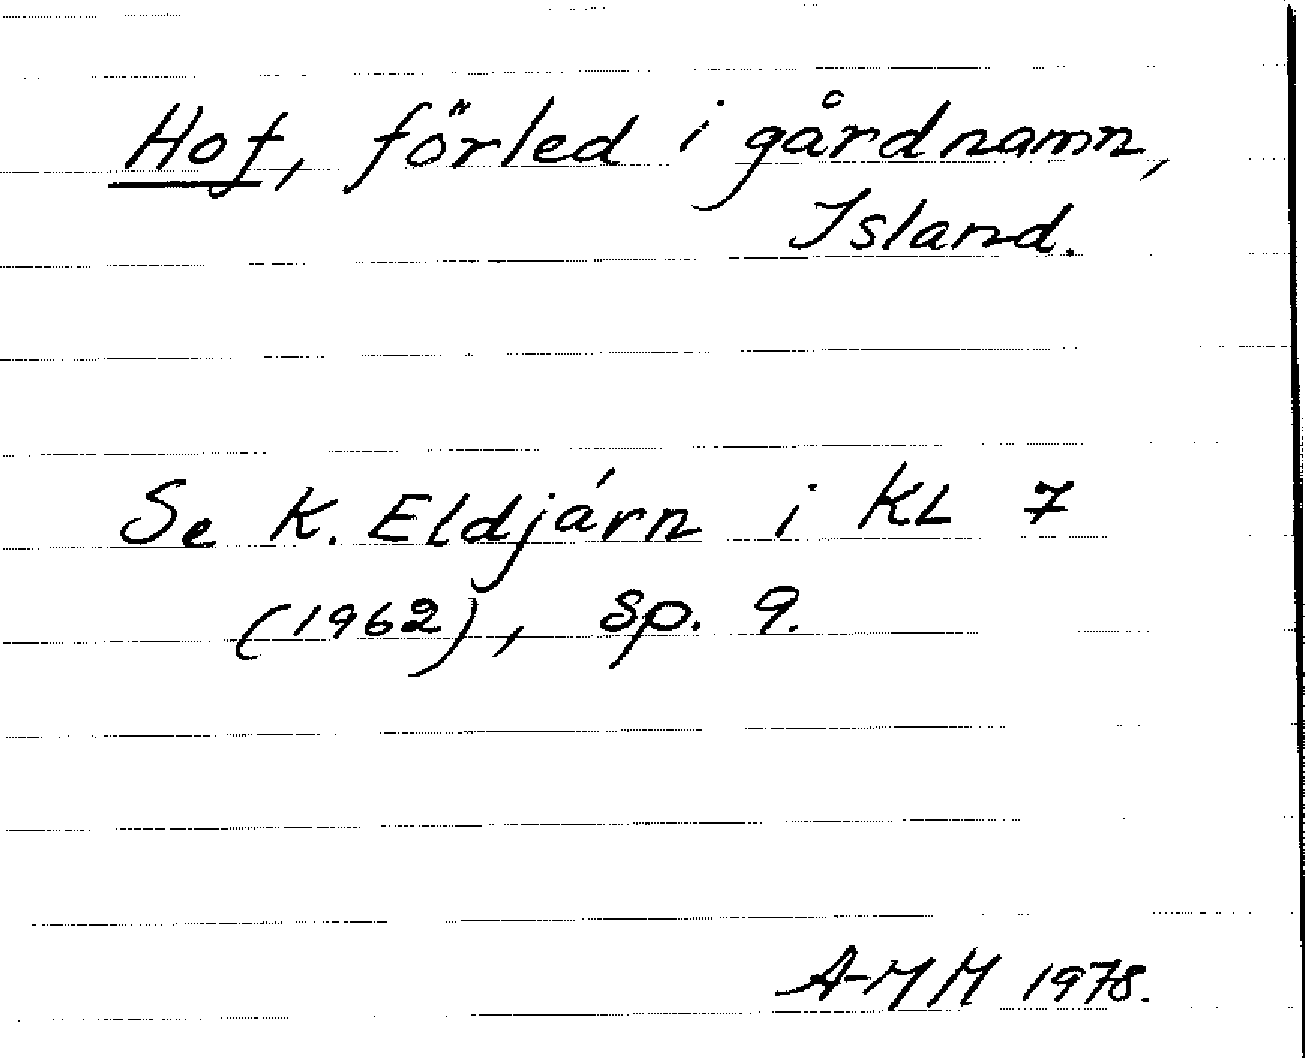 Hof, förled i gårdnamn,
Island.
Se K. Eldjárn i KL 7
(1962), sp. 9.
A-MH 1978.